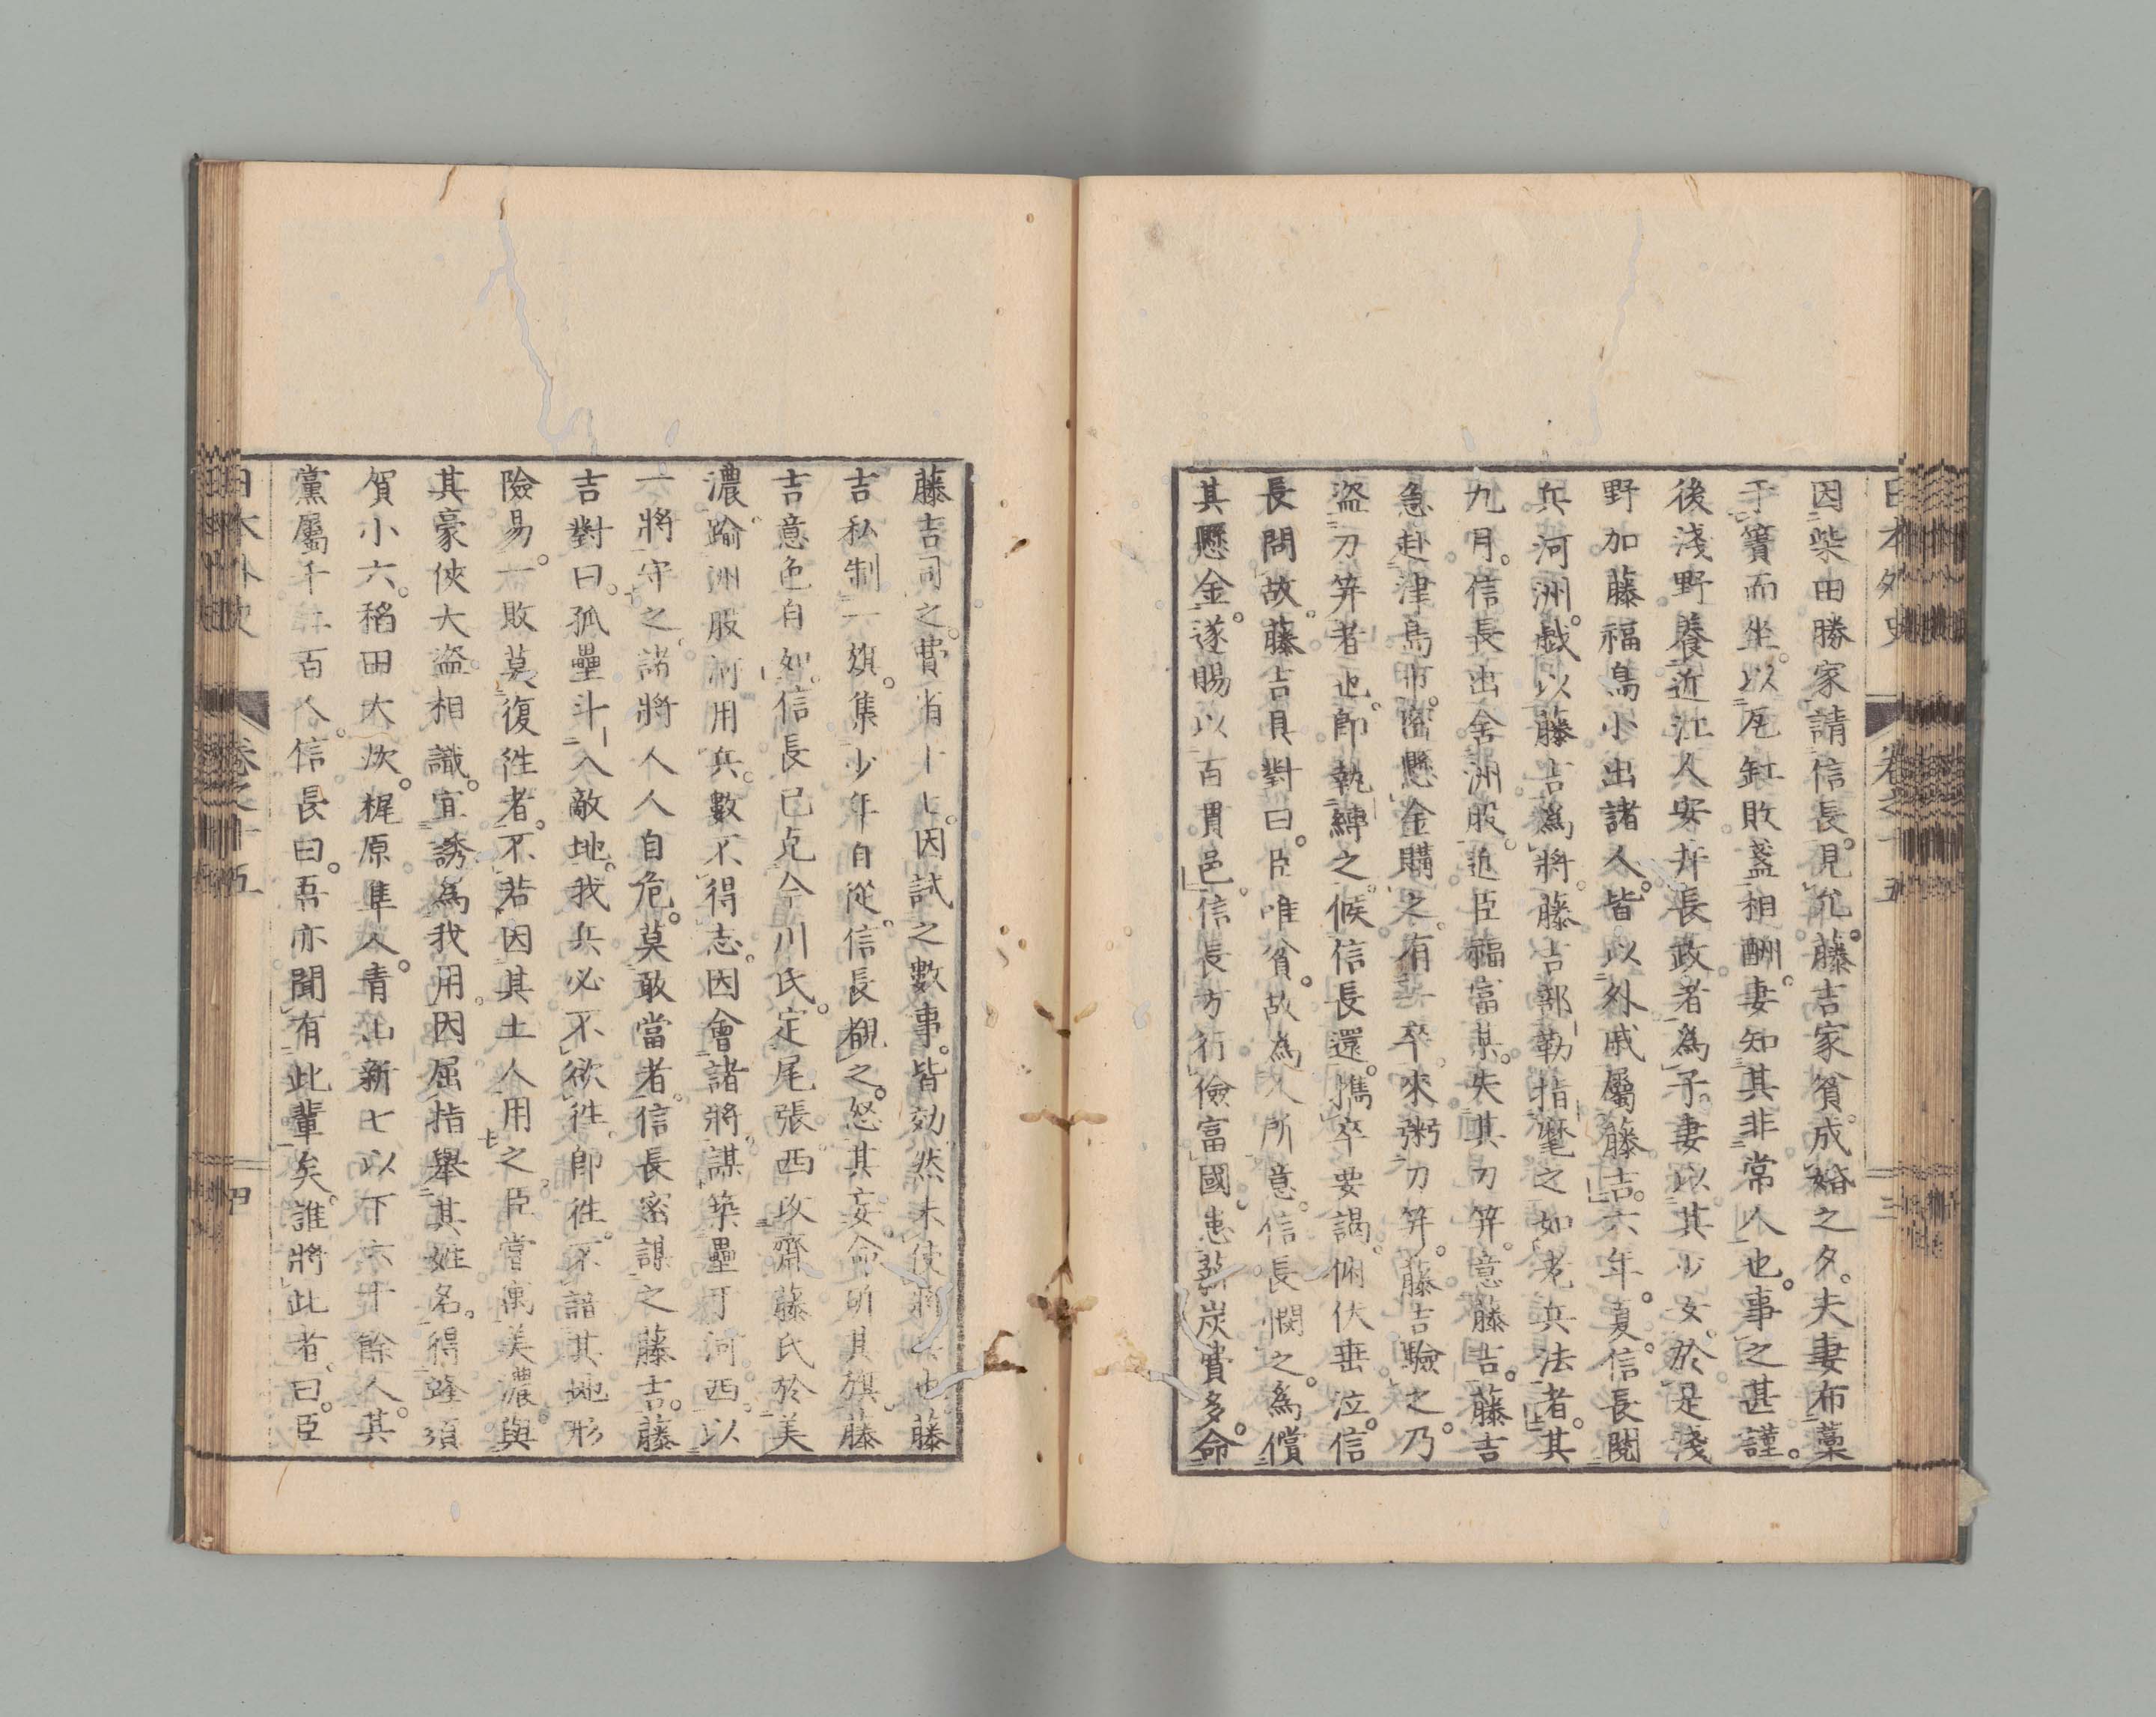 日本外史 卷之十五 三
因柴田勝家請信長見允藤吉家貧成婚之夕夫妻布藁
于簀而坐以瓦缸敗盞相酬妻知其非常人也事之甚謹
後淺野養近江人安井長政者為子妻以其少女於是淺
野加藤福島小出諸人皆以外戚屬藤吉六年夏信長閱
兵河洲戲以藤吉為將藤吉部勒指麾之如老兵法者其
九月信長出舍洲股近臣福富某失其刀笄意藤吉藤吉
急赴津島市密懸金購之有一卒來粥刀笄藤吉驗之乃
盜刀笄者也即執縛之候信長還携卒要謁俯伏垂泣信
長問故藤吉具對曰臣唯貧故為人所意信長憫之為償
其懸金遂賜以百貫邑信長方行儉富國患薪炭費多命
藤吉司之費省十七因試之數事皆効然未使將兵也藤
吉私制一旗集少年自從信長覩之怒其妄命斫其旗藤
吉意色自如信長已克今川氏定尾張西攻齋藤氏於美
濃踰洲股河用兵數不得志因會諸將謀築壘于河西以
一將守之諸將人人自危莫敢當者信長密謀之藤吉藤
吉對曰孤壘斗入敵地我兵必不欲往即往不諳其地形
險易一敗莫復往者不若因其土人用之臣嘗寓美濃與
其豪俠大盜相識宜誘為我用因屈指舉其姓名得蜂須
賀小六稻田大炊梶原隼人青山新七以下六十餘人其
黨屬千二百人信長曰吾亦聞有此輩矣誰將此者曰臣
日本外史 卷之十五 四